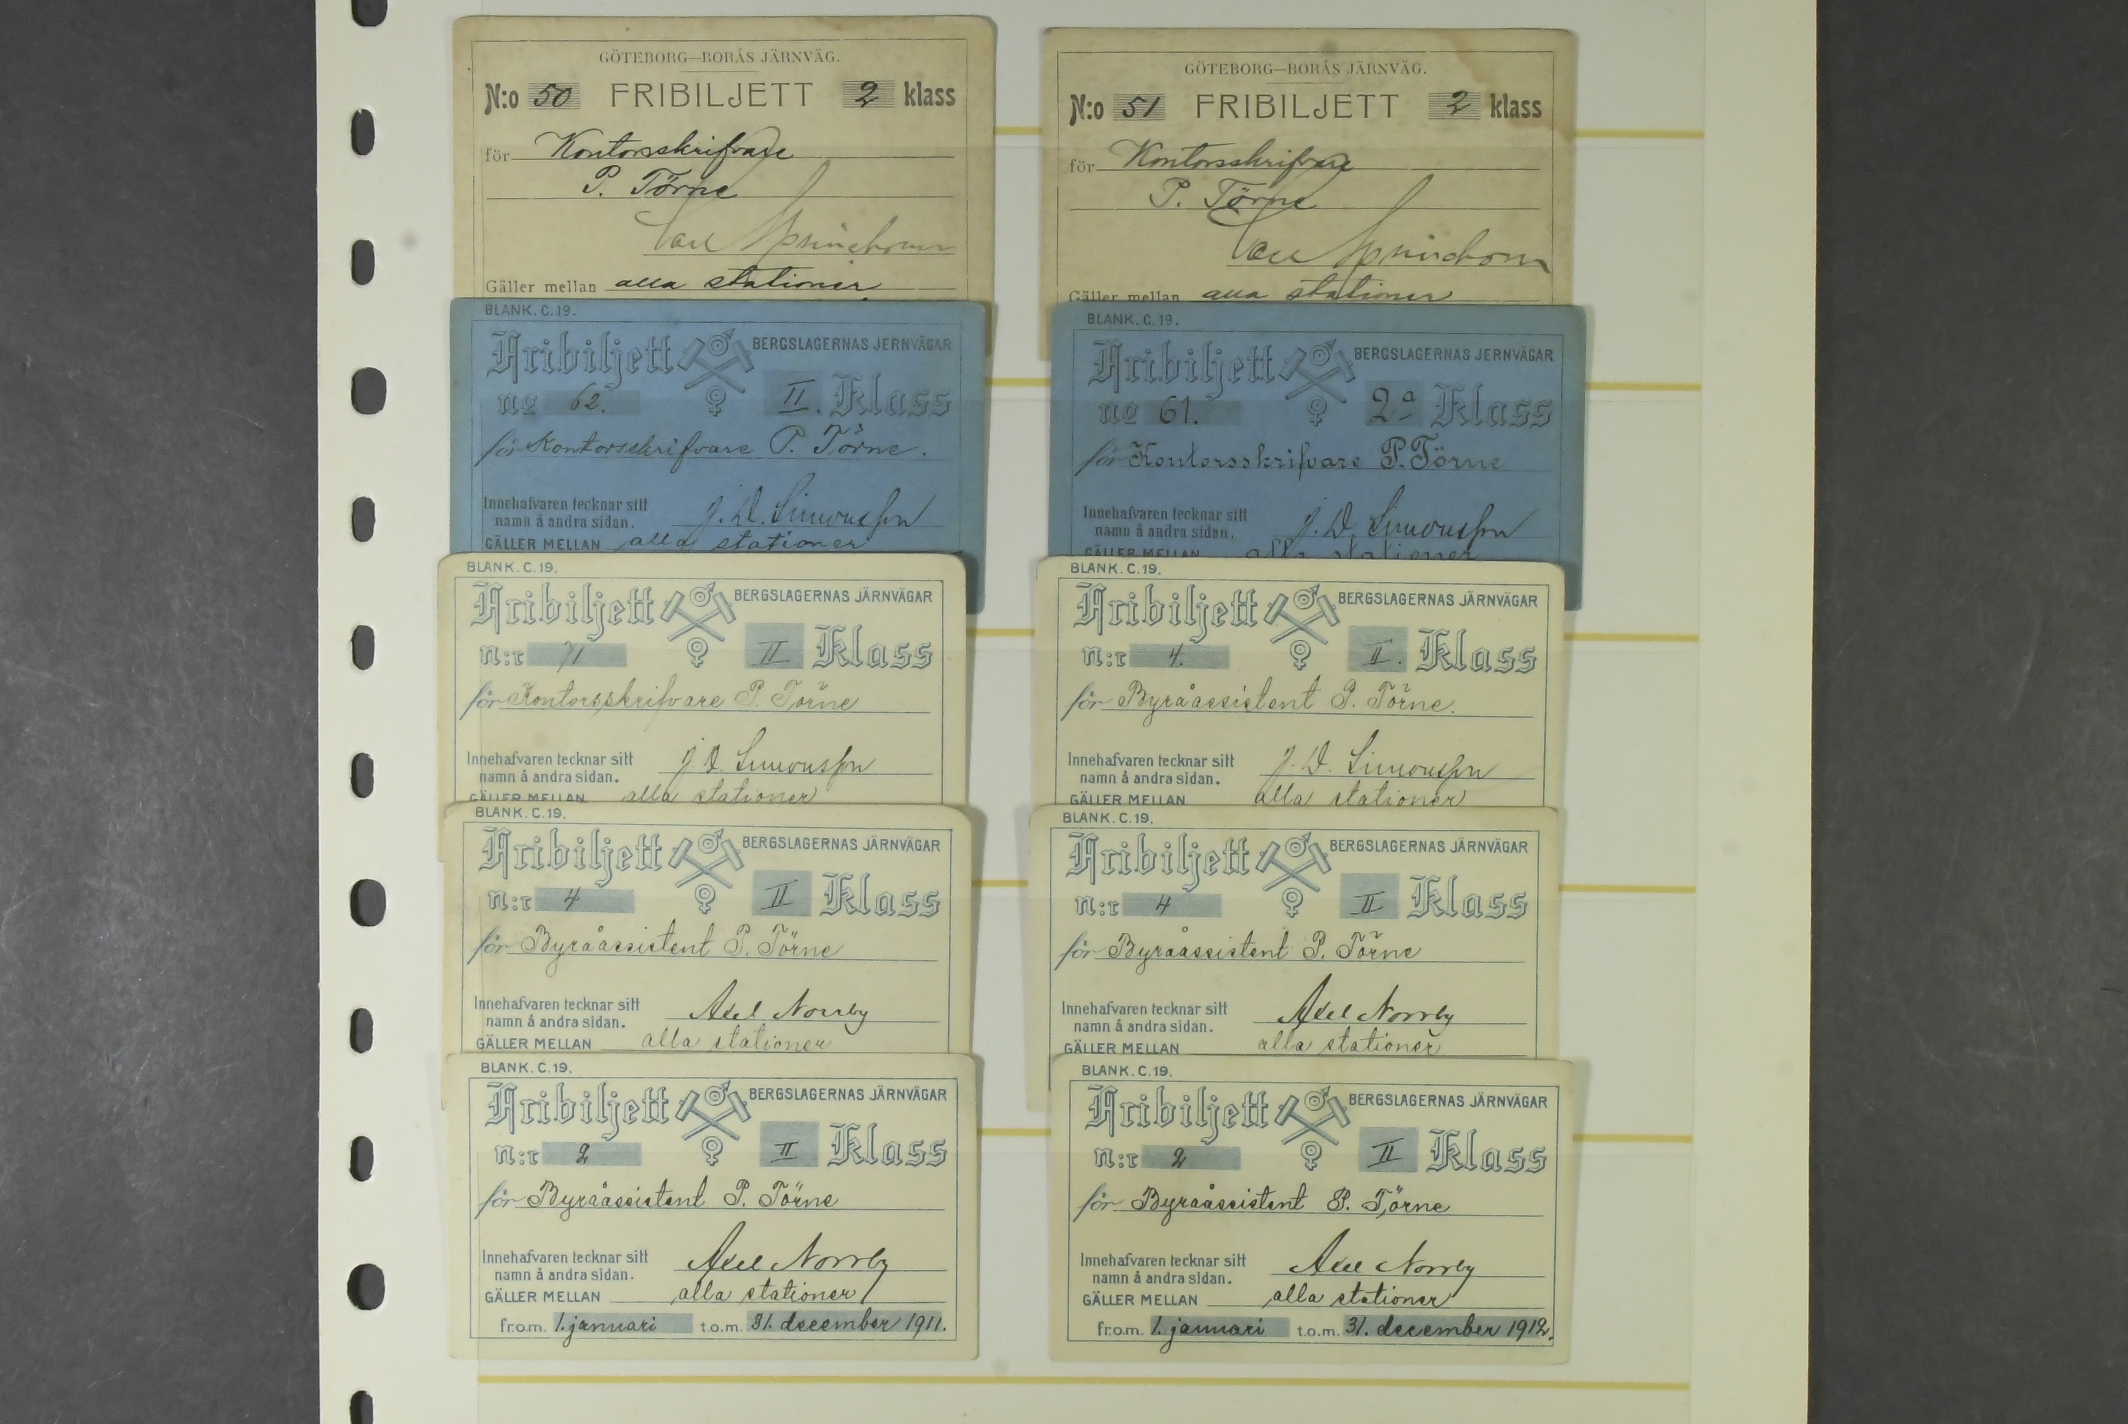 GÖTEBORG—BORÅS JÄRNVÄG.
N:o 50 FRIBILJETT 2 klass
för Kontorsskrifvare
P. Törne
Gäller mellan alla stationer
GÖTEBORG—BORÅS JÄRNVÄG.
N:o 51 FRIBILJETT 2 klass
för Kontorsskrifvare
P. Törne
Gäller mellan alla stationer
BLANK. C. 19.
Fribiljett BERGSLAGERNAS JERNVÄGAR
no 62. II. Klass
för Kontorsskrifvare P. Törne.
Innehafvaren tecknar sitt
namn å andra sidan. J. D. Simonsson
GÄLLER MELLAN alla stationer
BLANK. C. 19.
Fribiljett BERGSLAGERNAS JERNVÄGAR
no 61. 2a Klass
för Kontorsskrifvare P. Törne
Innehafvaren tecknar sitt
namn å andra sidan. J. D. Simonsson
GÄLLER MELLAN alla stationer
BLANK. C. 19.
Fribiljett BERGSLAGERNAS JÄRNVÄGAR
n:r 71 II Klass
för Kontorsskrifvare P. Törne
Innehafvaren tecknar sitt
namn å andra sidan. J. D. Simonsson
GÄLLER MELLAN alla stationer
BLANK. C. 19.
Fribiljett BERGSLAGERNAS JÄRNVÄGAR
n:r 4. II. Klass
för Byråassistent P. Törne.
Innehafvaren tecknar sitt
namn å andra sidan. J. D. Simonsson
GÄLLER MELLAN alla stationer
BLANK. C. 19.
Fribiljett BERGSLAGERNAS JÄRNVÄGAR
n:r 4 II Klass
för Byråassistent P. Törne
Innehafvaren tecknar sitt
namn å andra sidan. Axel Norrby
GÄLLER MELLAN alla stationer
BLANK. C. 19.
Fribiljett BERGSLAGERNAS JÄRNVÄGAR
n:r 4 II Klass
för Byråassistent P. Törne
Innehafvaren tecknar sitt
namn å andra sidan. Axel Norrby
GÄLLER MELLAN alla stationer
BLANK. C. 19.
Fribiljett BERGSLAGERNAS JÄRNVÄGAR
n:r 2 II Klass
för Byråassistent P. Törne
Innehafvaren tecknar sitt
namn å andra sidan. Axel Norrby
GÄLLER MELLAN alla stationer
fr.o.m. 1. januari t.o.m. 31. december 1911.
BLANK. C. 19.
Fribiljett BERGSLAGERNAS JÄRNVÄGAR
n:r 2 II Klass
för Byråassistent P. Törne
Innehafvaren tecknar sitt
namn å andra sidan. Axel Norrby
GÄLLER MELLAN alla stationer
fr.o.m. 1. januari t.o.m. 31. december 1912.